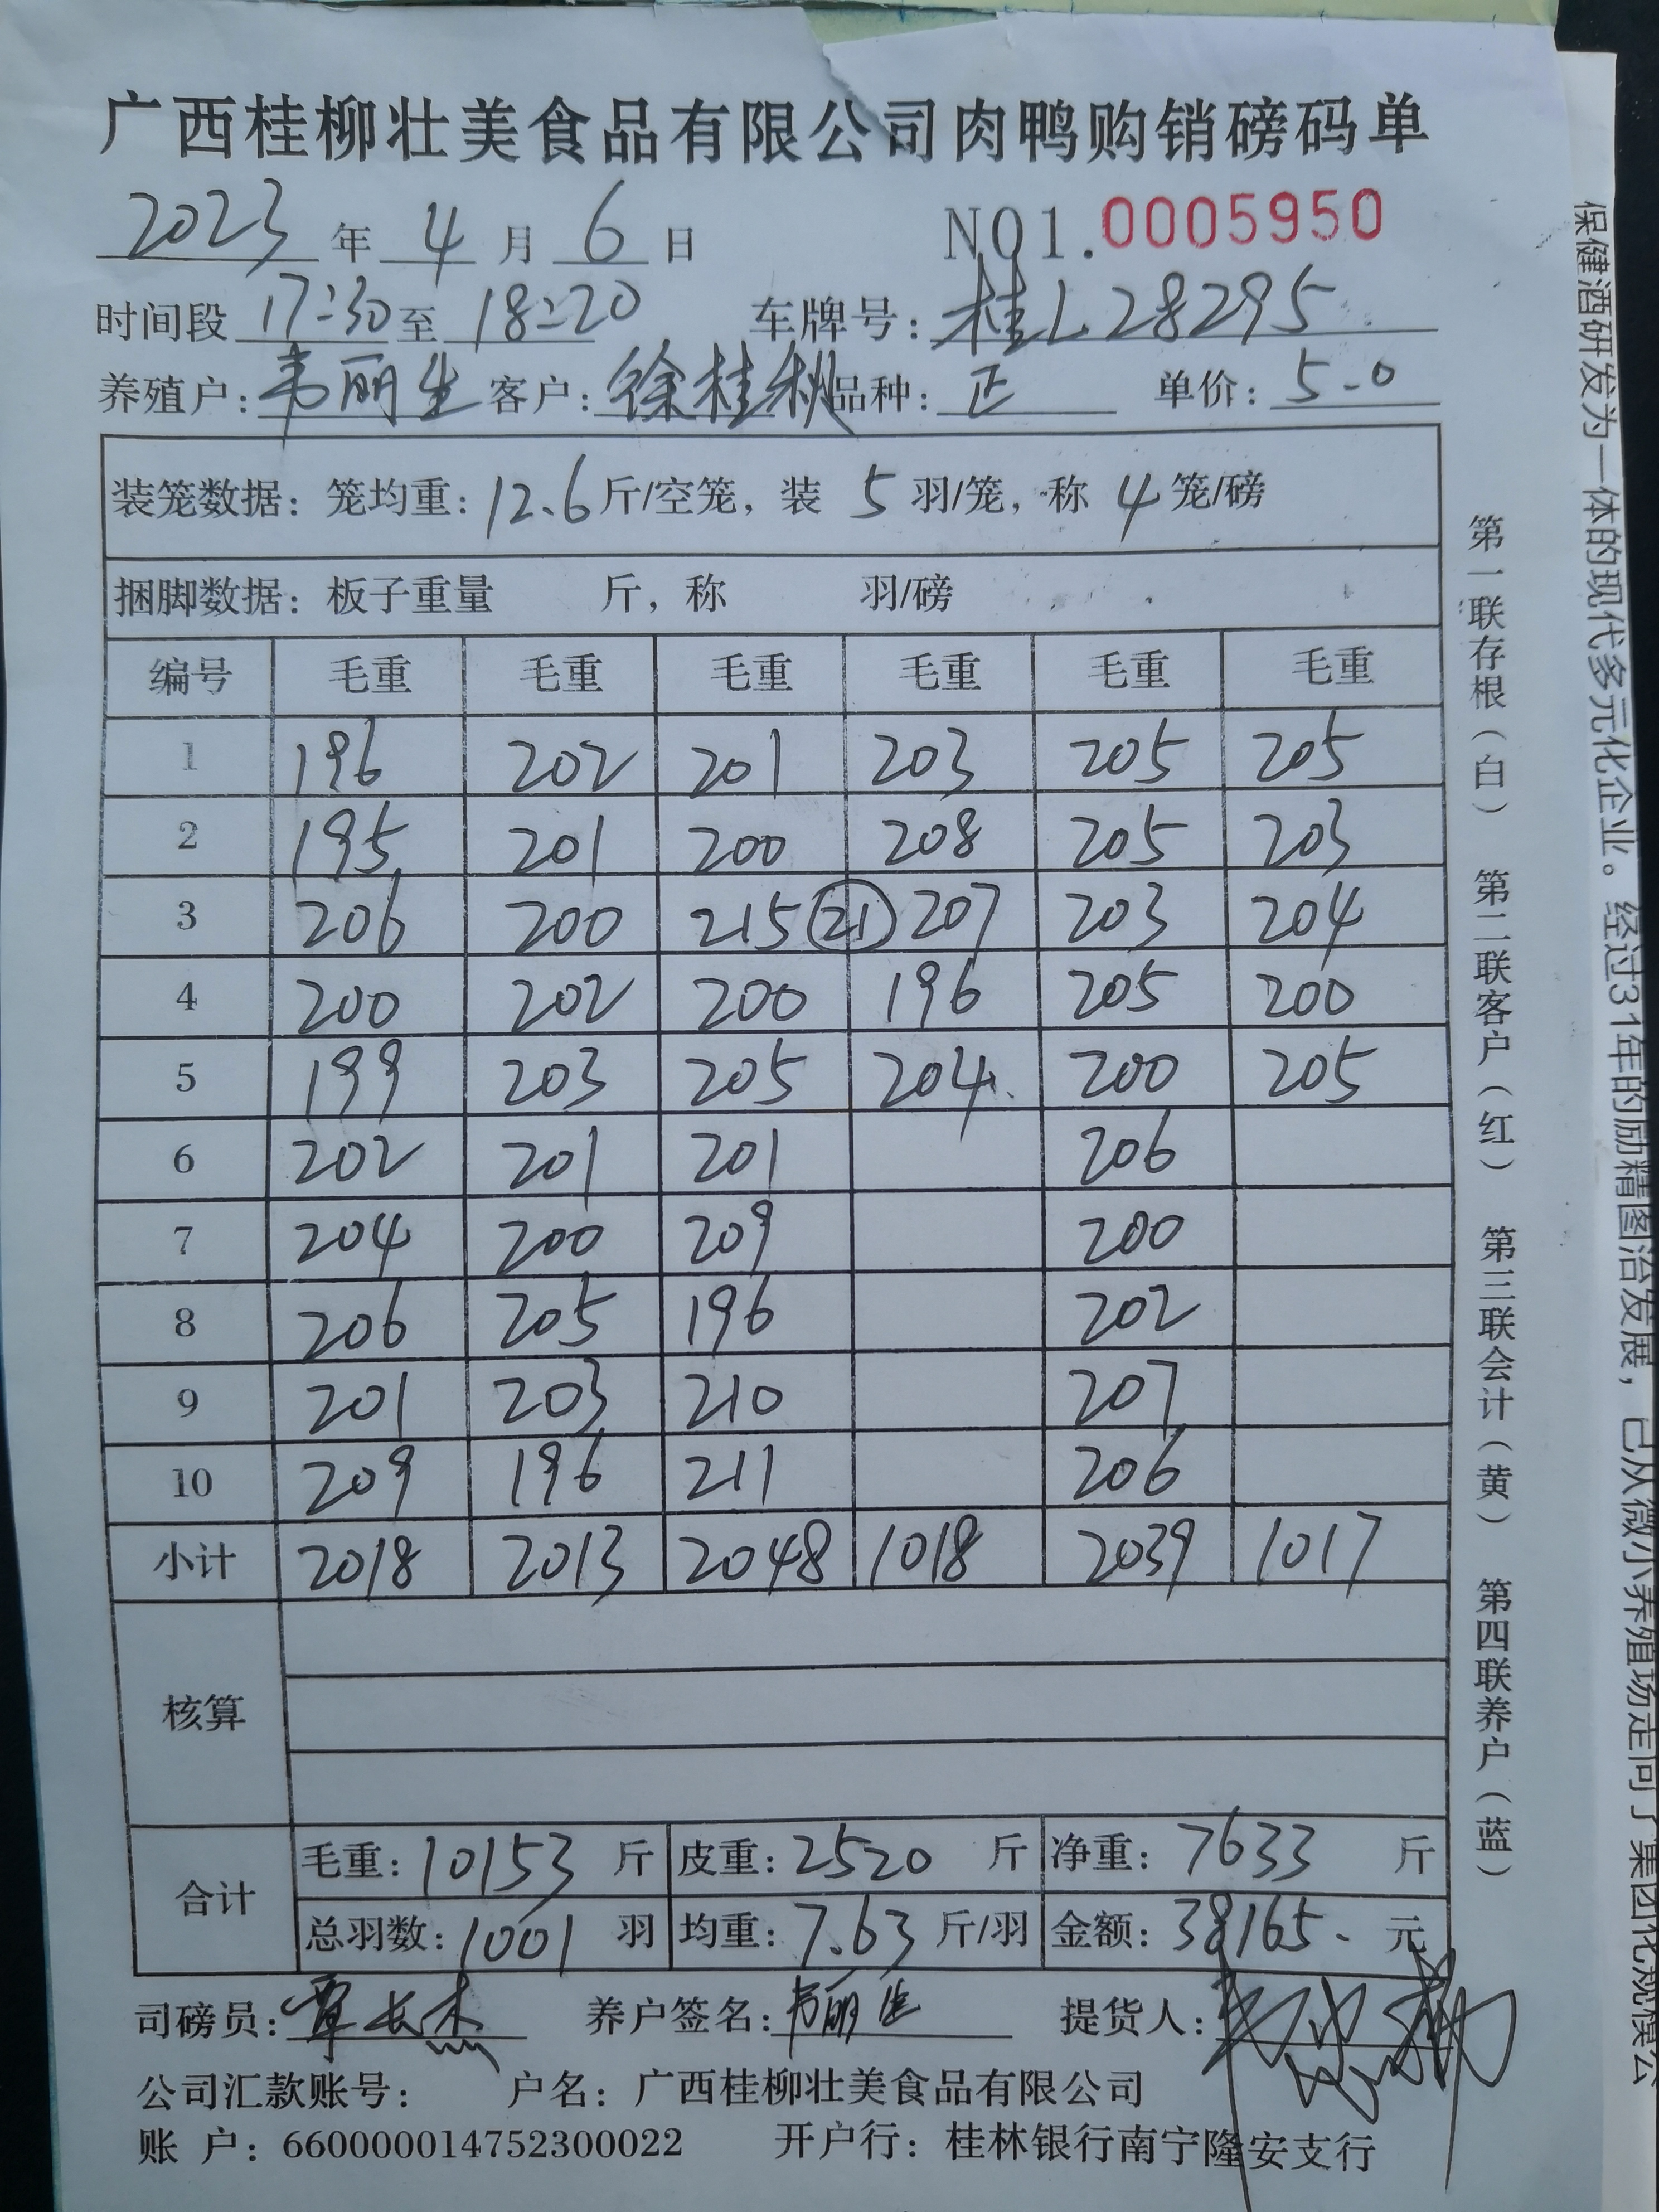 广西桂柳壮美食品有限公司肉鸭购销磅码单
2023 年 4 月 6 日 NO1.0005950
时间段 17:30 至 18:20 车牌号: 桂L28295
养殖户: 韦丽生 客户: 徐桂秋 品种: 正 单价: 5.0
装笼数据: 笼均重: 12.6 斤/空笼, 装 5 羽/笼, 称 4 笼/磅
捆脚数据: 板子重量 斤, 称 羽/磅
编号 毛重 毛重 毛重 毛重 毛重 毛重
1 196 202 201 203 205 205
2 195 201 200 208 205 203
3 206 200 215 21 207 203 204
4 200 202 200 196 205 200
5 199 203 205 204 200 205
6 202 201 201 206
7 204 200 209 200
8 206 205 196 202
9 201 203 210 207
10 209 196 211 206
小计 2018 2013 2048 1018 2039 1017
核算
合计 毛重: 10153 斤 皮重: 2520 斤 净重: 7633 斤
总羽数: 1001 羽 均重: 7.63 斤/羽 金额: 38165. 元
司磅员: 覃长杰 养户签名: 韦丽生 提货人:
公司汇款账号: 户名: 广西桂柳壮美食品有限公司
账 户: 660000014752300022 开户行: 桂林银行南宁隆安支行
第一联存根（白） 第二联客户（红） 第三联会计（黄） 第四联养户（蓝）
保健酒研发为一体的现代多元化企业。经过31年的励精图治发展，已从微小养殖场走向了集团化规模公